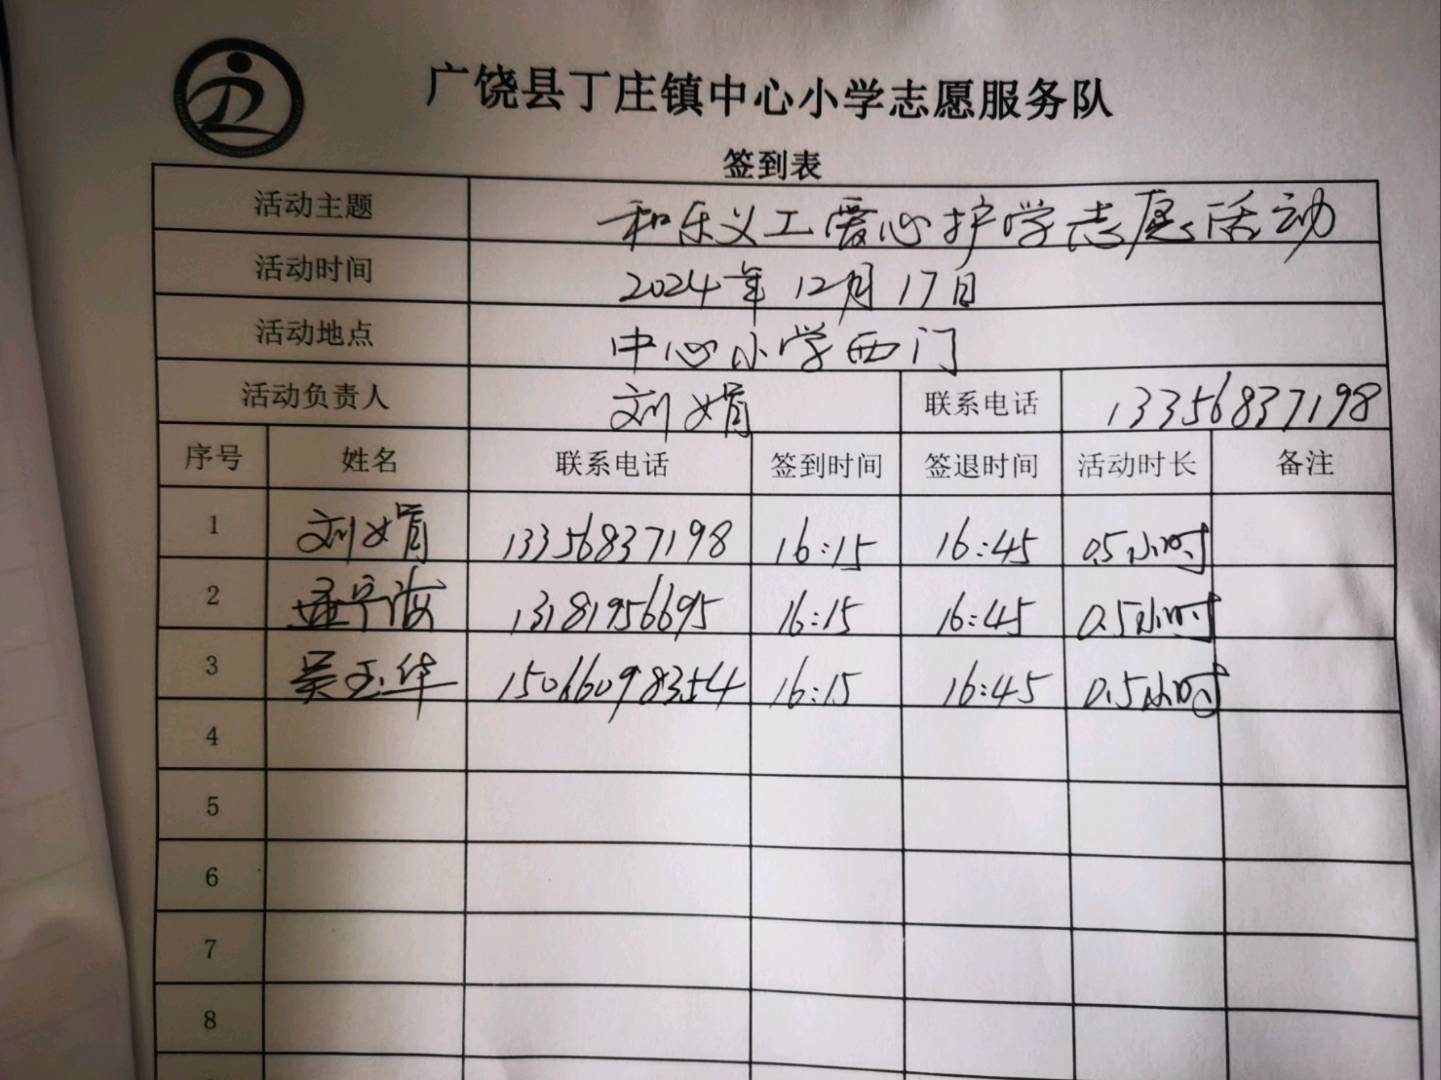 广饶县丁庄镇中心小学志愿服务队
签到表
活动主题 和乐义工爱心护学志愿活动
活动时间 2024年12月17日
活动地点 中心小学西门
活动负责人 刘娟 联系电话 13356837198
序号 姓名 联系电话 签到时间 签退时间 活动时长 备注
1 刘娟 13356837198 16:15 16:45 0.5小时
2 13181956695 16:15 16:45 0.5小时
3 吴玉华 15066098354 16:15 16:45 0.5小时
4
5
6
7
8